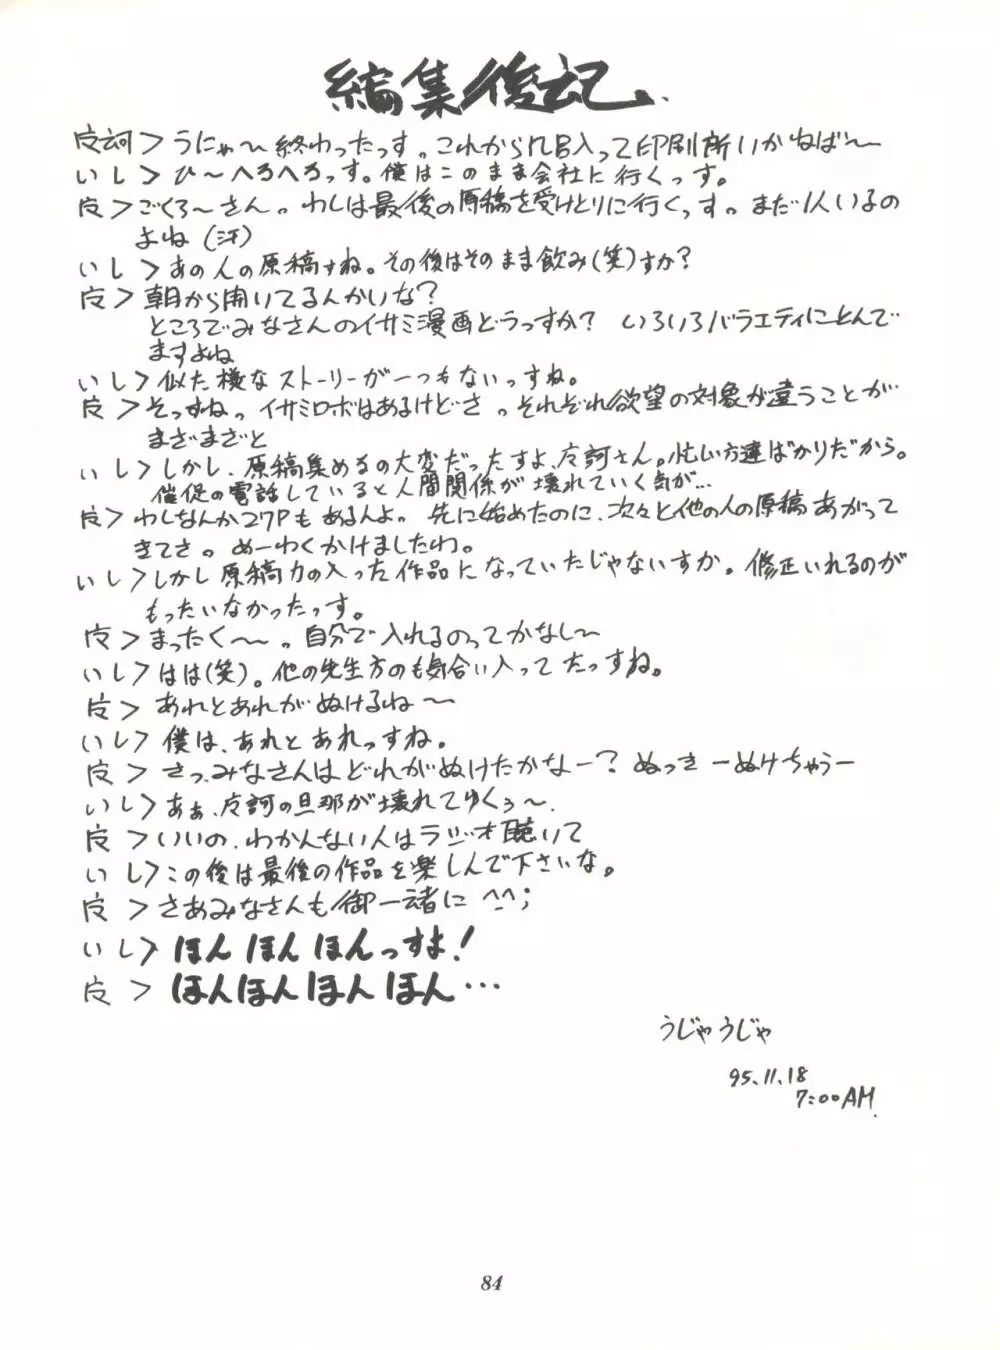 編集後記
> うにゃ〜終わったっす。これから風呂入って印刷所いかねば〜
いし> ひ〜へろへろっす。僕はこのまま会社に行くっす。
> ごくろ〜さん。わしは最後の原稿を受けとりに行くっす。まだ1人いるの
よね(汗)
いし> あの人の原稿すね。その後はそのまま飲み(笑)すか?
> 朝から開いてるんかいな?
ところでみなさんのイサミ漫画どうっすか? いろいろバラエティにとんで
ますよね
いし> 似た様なストーリーが一つもないっすね。
> そっすね。イサミロボはあるけどさ。それぞれ欲望の対象が違うことが
まざまざと
いし> しかし、原稿集めるの大変だったすよ、訶さん。忙しい方達ばかりだから。
催促の電話していると人間関係が壊れていく気が…
> わしなんか27Pもあるんよ。先に始めたのに、次々と他の人の原稿あがって
きてさ。めーわくかけましたわ。
いし> しかし原稿力の入った作品になっていたじゃないすか。修正いれるのが
もったいなかったっす。
> まったく〜〜。自分で入れるのってかなし〜
いし> はは(笑)。他の先生方のも気合い入ってたっすね。
> あれとあれがぬけるね〜
いし> 僕は、あれとあれっすね。
> さっ、みなさんはどれがぬけたかなー? ぬっきーぬけちゃうー
いし> あぁ、訶の旦那が壊れてゆくぅ〜、
> いいの、わかんない人はラジオ聴いて
いし> この後は最後の作品を楽しんで下さいな。
> さあみなさんも御一緒に ^_^;
いし> ほん ほん ほんっすよ!
> ほんほんほんほん…
うじゃうじゃ
95.11.18
7:00AM.
84